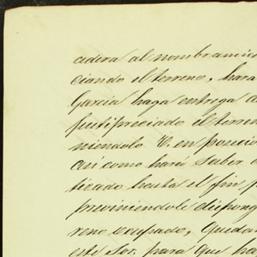 cedera al nombramien
ciando el terreno, hara
Garcia haga entrega d
justipreciado el terren
niendole E. en posecio
así como hará saber
tizado hasta el fin p
previniendole dispong
reno ocupado, Queda
este Sor. para que ha